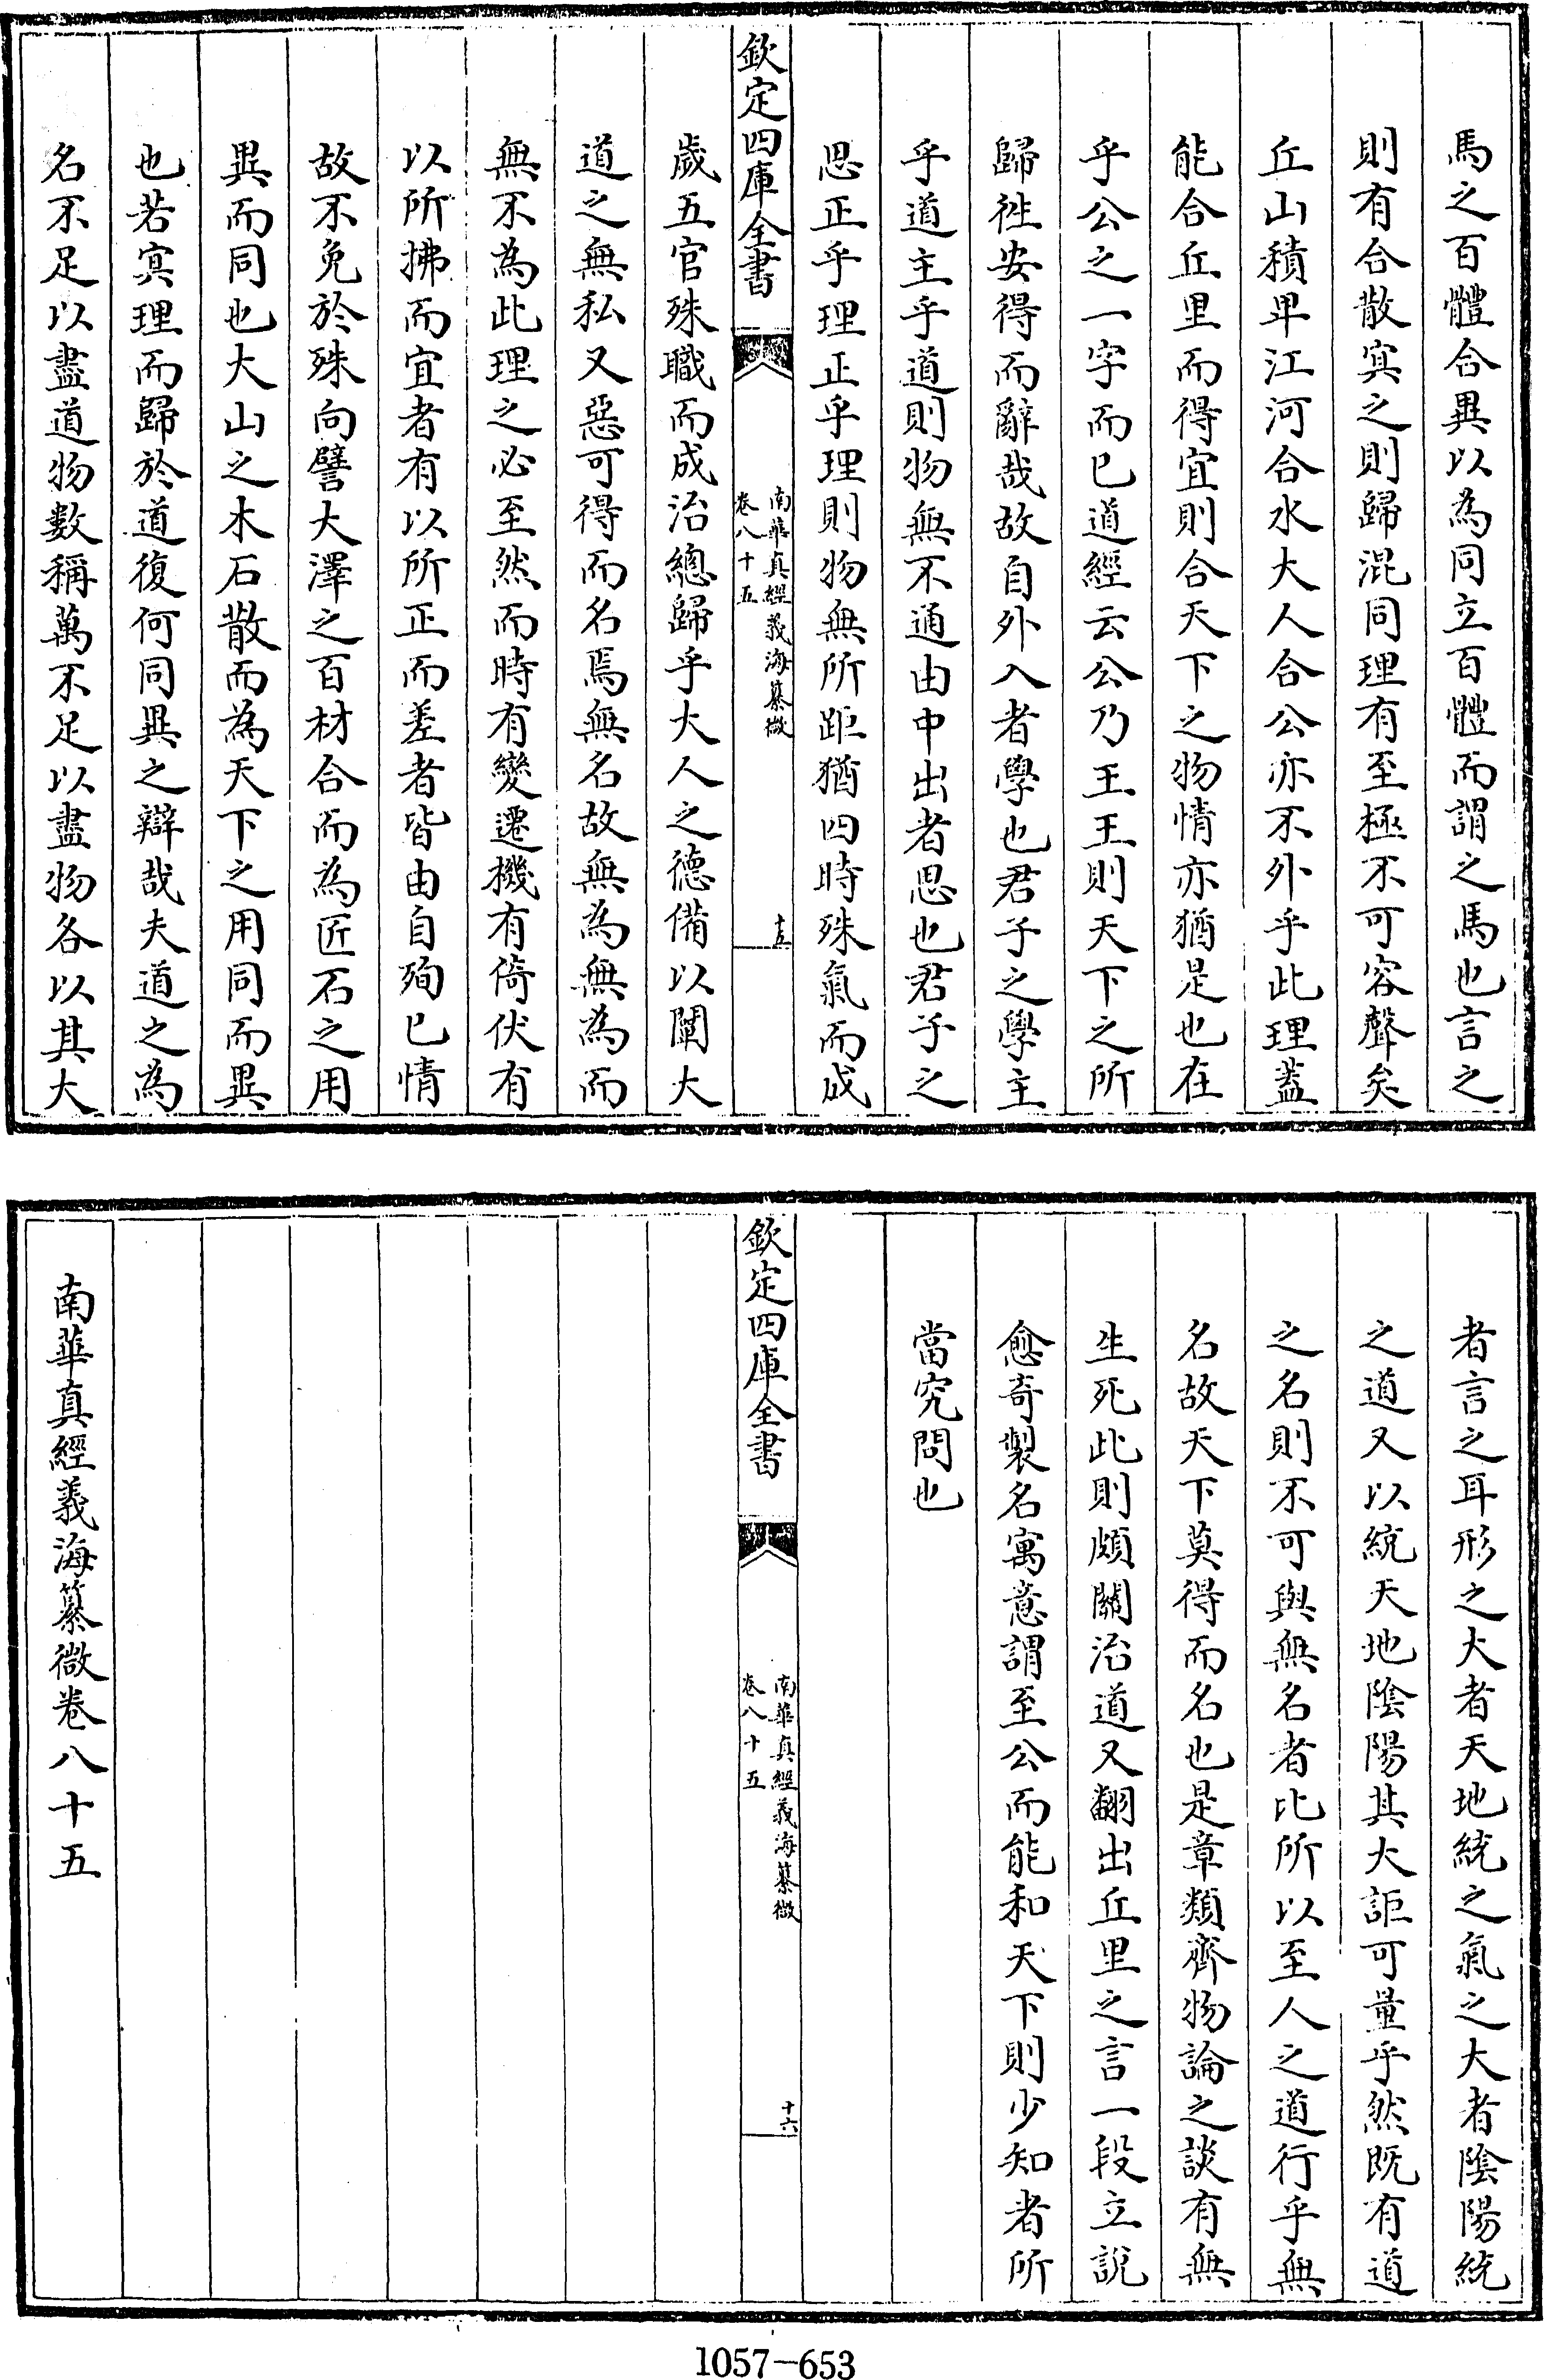 馬之百體合異以為同立百體而謂之馬也言之
則有合散冥之則歸混同理有至極不可容聲矣
丘山積卑江河合水大人合公亦不外乎此理蓋
能合丘里而得宜則合天下之物情亦猶是也在
乎公之一字而已道經云公乃王王則天下之所
歸徃安得而辭哉故自外入者學也君子之學主
乎道主乎道則物無不通由中出者思也君子之
思正乎理正乎理則物無所距猶四時殊氣而成
欽定四庫全書
南華真經義海纂微
卷八十五
十五
歲五官殊職而成治總歸乎大人之德備以闡大
道之無私又惡可得而名焉無名故無為無為而
無不為此理之必至然而時有變遷機有倚伏有
以所拂而宜者有以所正而差者皆由自殉已情
故不免於殊向譬大澤之百材合而為匠石之用
異而同也大山之木石散而為天下之用同而異
也若冥理而歸於道復何同異之辯哉夫道之為
名不足以盡道物數稱萬不足以盡物各以其大
者言之耳形之大者天地統之氣之大者陰陽統
之道又以統天地陰陽其大詎可量乎然既有道
之名則不可與無名者比所以至人之道行乎無
名故天下莫得而名也是章類齊物論之談有無
生死此則頗關治道又翻出丘里之言一段立說
愈奇製名寓意謂至公而能和天下則少知者所
當究問也
欽定四庫全書
南華真經義海纂微
卷八十五
十六
南華真經義海纂微卷八十五
1057-653